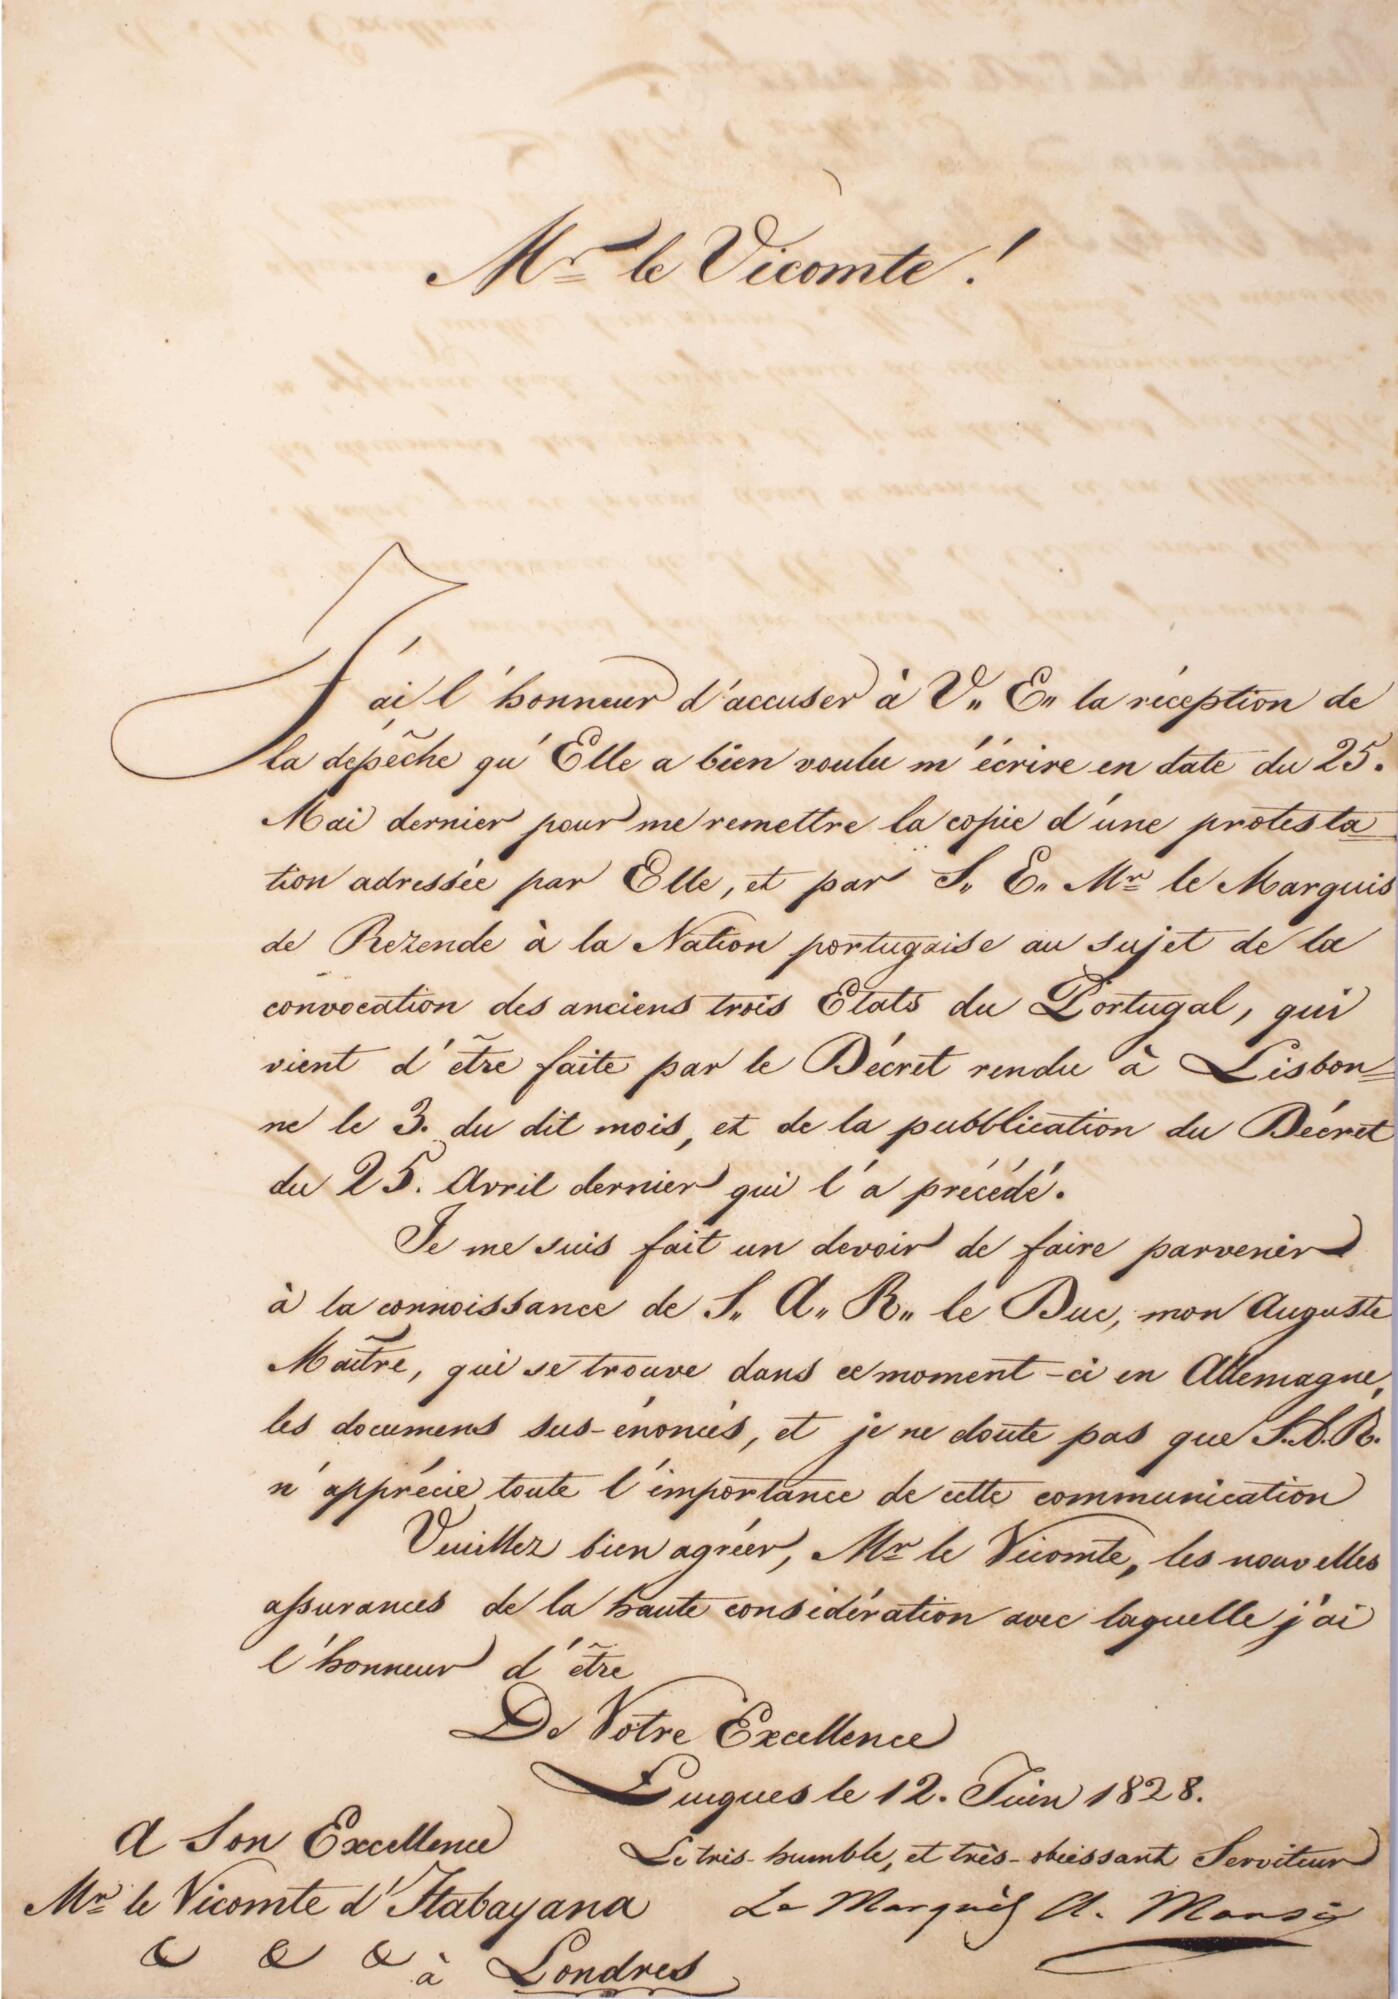 Mr le Vicomte!
J'ai l'honneur d'accuser à V,, E,, la réception de
la depêche qu'Elle a bien voulu m'écrire en date du 25.
Mai dernier pour me remettre la copie d'une protesta=
tion adressée par Elle, et par S,, E,, Mr le Marquis
de Rezende à la Nation portugaise au sujet de la
convocation des anciens trois Etats du Portugal, qui
vient d'être faite par le Décret rendu à Lisbon=
ne le 3. du dit mois, et de la pubblication du Décret
du 25. Avril dernier qui l'a précédé.
Je me suis fait un devoir de faire parvenir
à la connoissance de S,, A,, R,, le Duc, mon Auguste
Maître, qui se trouve dans ce moment-ci en Allemagne,
les documens sus-énoncés, et je ne doute pas que S.A.R.
n'apprécie toute l'importance de cette communication
Veuillez bien agréer, Mr le Vicomte, les nouvelles
assurances de la haute considération avec laquelle j'ai
l'honneur d'être
De Votre Excellence
Lucques le 12. Juin 1828.
Le très-humble, et très-obéissant Serviteur
Le Marquis A. Mansi
A Son Excellence
Mr le Vicomte d'Itabayana
& & & à Londres